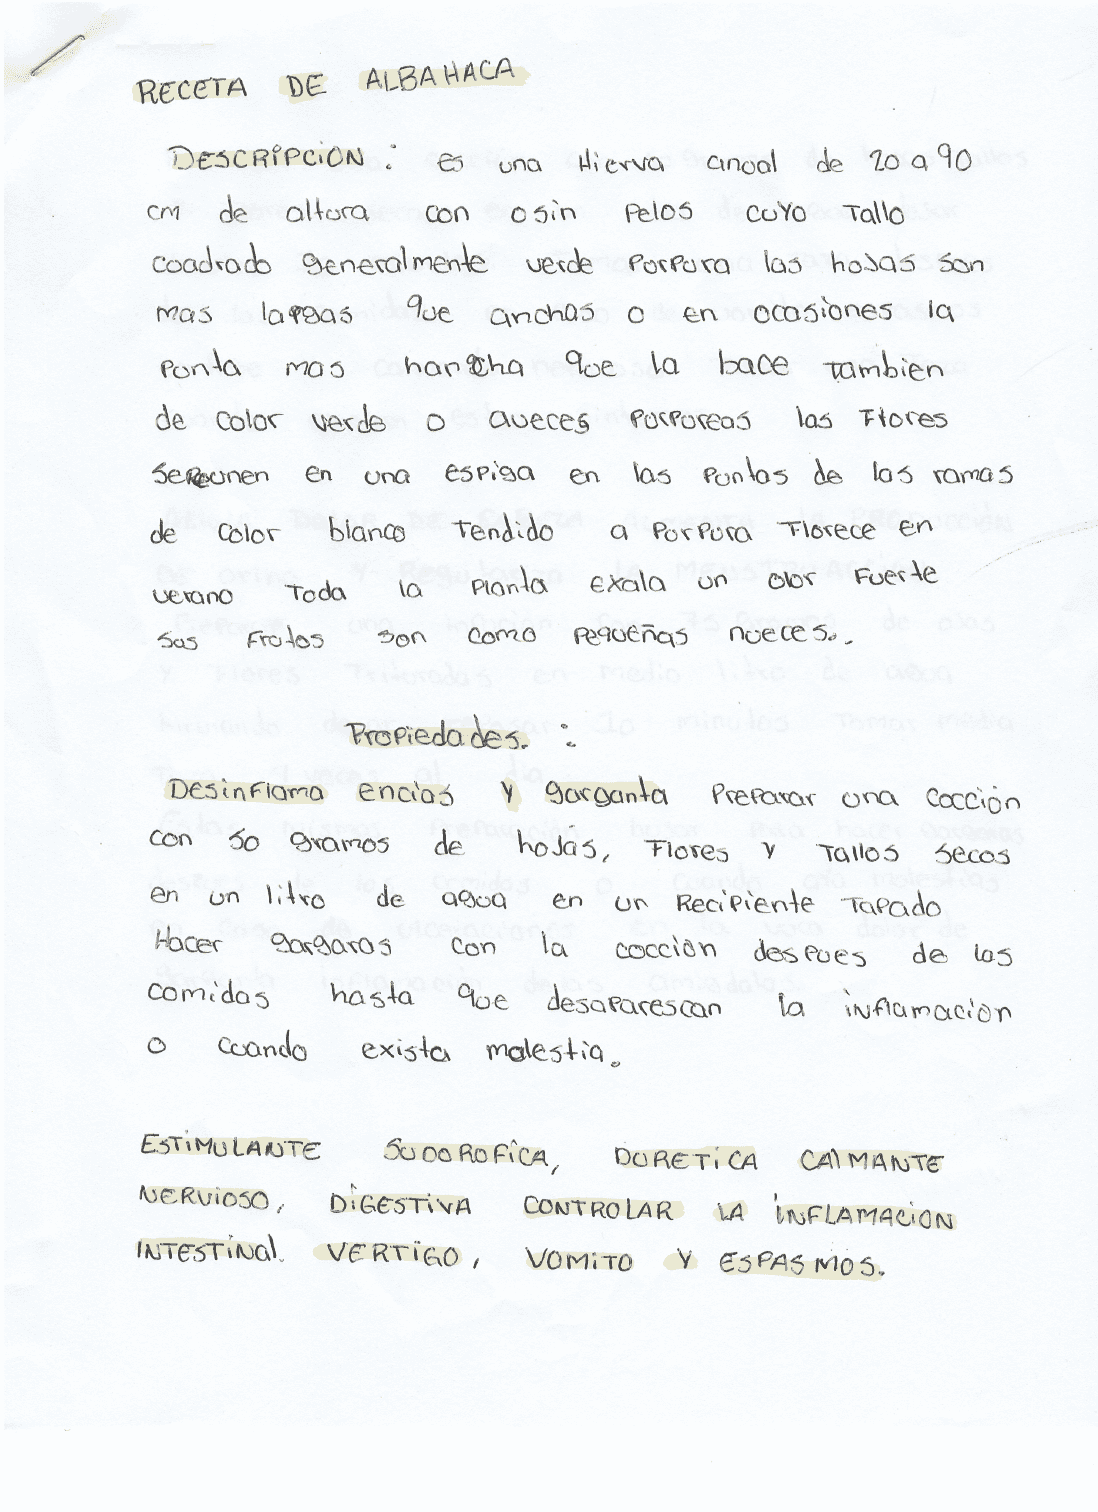 RECETA DE ALBAHACA
DESCRIPCION : es una Hierva anual de 20 a 90
cm de altura con o sin Pelos cuyo Tallo
cuadrado generalmente verde Porpura las hojas son
mas largas que anchas o en ocasiones la
Punta mas hancha que la bace tambien
de color verde o aveces Purpureas las Flores
se reunen en una espiga en las Puntas de las ramas
de color blanco Tendido a Porpura Florece en
verano Toda la Planta exala un olor Fuerte
sus Frutos son como Pequeñas nueces..
Propiedades. :
Desinflama encias y garganta Preparar una cocción
con 50 gramos de hojas, Flores y Tallos secos
en un litro de agua en un Recipiente Tapado
Hacer gargaras con la cocción despues de las
comidas hasta que desaparescan la inflamacion
o cuando exista molestia.
ESTIMULANTE SUDOROFICA, DURETICA CALMANTE
NERVIOSO, DIGESTIVA CONTROLAR LA INFLAMACION
INTESTINAL. VERTIGO, VOMITO Y ESPASMOS.